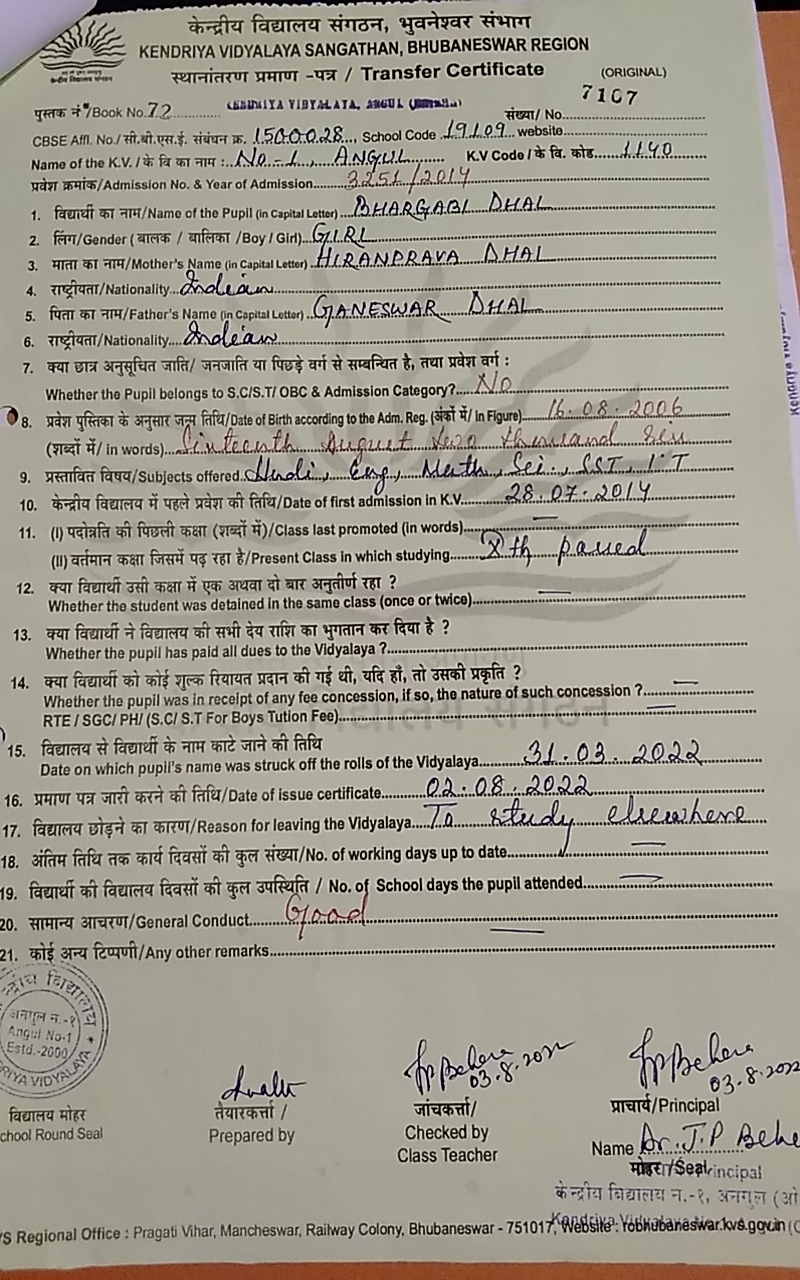 केन्द्रीय विद्यालय संगठन, भुवनेश्वर संभाग
KENDRIYA VIDYALAYA SANGATHAN, BHUBANESWAR REGION
स्थानांतरण प्रमाण -पत्र / Transfer Certificate
(ORIGINAL)
पुस्तक नं॰/Book No. 72 KENDRIYA VIDYALAYA, ANGUL संख्या/ No. 7107
CBSE Affl. No./सी.बी.एस.ई. संबंधन क्र. 1500028, School Code 19109 website
Name of the K.V./के वि का नाम : No-1, ANGUL K.V Code/के वि. कोड 1140
प्रवेश क्रमांक/Admission No. & Year of Admission 3251/2014
1. विद्यार्थी का नाम/Name of the Pupil (in Capital Letter) BHARGABI DHAL
2. लिंग/Gender ( बालक / बालिका /Boy / Girl) GIRL
3. माता का नाम/Mother's Name (in Capital Letter) HIRANPRAVA DHAL
4. राष्ट्रीयता/Nationality Indian
5. पिता का नाम/Father's Name (in Capital Letter) GANESWAR DHAL
6. राष्ट्रीयता/Nationality Indian
7. क्या छात्र अनुसूचित जाति/ जनजाति या पिछड़े वर्ग से सम्बन्धित है, तथा प्रवेश वर्ग :
Whether the Pupil belongs to S.C/S.T/ OBC & Admission Category? No
8. प्रवेश पुस्तिका के अनुसार जन्म तिथि/Date of Birth according to the Adm. Reg. (अंकों में/ in Figure) 16.08.2006
(शब्दों में/ in words) Sixteenth August two thousand six
9. प्रस्तावित विषय/Subjects offered Hindi, Eng, Math, Sci., SST, I.T
10. केन्द्रीय विद्यालय में पहले प्रवेश की तिथि/Date of first admission in K.V. 28.07.2014
11. (I) पदोन्नति की पिछली कक्षा (शब्दों में)/Class last promoted (in words) —
(II) वर्तमान कक्षा जिसमें पढ़ रहा है/Present Class in which studying Xth passed
12. क्या विद्यार्थी उसी कक्षा में एक अथवा दो बार अनुतीर्ण रहा ?
Whether the student was detained in the same class (once or twice) —
13. क्या विद्यार्थी ने विद्यालय की सभी देय राशि का भुगतान कर दिया है ?
Whether the pupil has paid all dues to the Vidyalaya ?
14. क्या विद्यार्थी को कोई शुल्क रियायत प्रदान की गई थी, यदि हाँ, तो उसकी प्रकृति ?
Whether the pupil was in receipt of any fee concession, if so, the nature of such concession ? —
RTE / SGC/ PH/ (S.C/ S.T For Boys Tution Fee) —
15. विद्यालय से विद्यार्थी के नाम काटे जाने की तिथि
Date on which pupil's name was struck off the rolls of the Vidyalaya 31.03.2022
16. प्रमाण पत्र जारी करने की तिथि/Date of issue certificate 02.08.2022
17. विद्यालय छोड़ने का कारण/Reason for leaving the Vidyalaya To study elsewhere
18. अंतिम तिथि तक कार्य दिवसों की कुल संख्या/No. of working days up to date —
19. विद्यार्थी की विद्यालय दिवसों की कुल उपस्थिति / No. of School days the pupil attended —
20. सामान्य आचरण/General Conduct Good
21. कोई अन्य टिप्पणी/Any other remarks —
अनगुल न.-१
Angul No-1
Estd.-2000
JPBehera 03.8.2022
JPBehera 03.8.2022
विद्यालय मोहर
chool Round Seal
तैयारकर्त्ता /
Prepared by
जांचकर्त्ता/
Checked by
Class Teacher
प्राचार्य/Principal
Name Dr. J.P Behe
मोहर /Seal Principal
केन्द्रीय विद्यालय न.-१, अनगुल (ओ
VS Regional Office : Pragati Vihar, Mancheswar, Railway Colony, Bhubaneswar - 751017, Website : robhubaneswar.kvs.gov.in